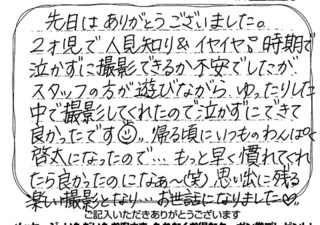 先日はありがとうございました。
2才児で人見知り&イヤイヤ期で
泣かずに撮影できるか不安でしたが
スタッフの方が遊びながら、ゆったりした
中で撮影してくれたので泣かずにできて
良かったです😊。帰る頃にいつものわんぱく
啓太になったので…もっと早く慣れてくれ
たら良かったのになぁ~(笑)思い出に残る
楽しい撮影となり…お世話になりました♡
ご記入いただきありがとうございます